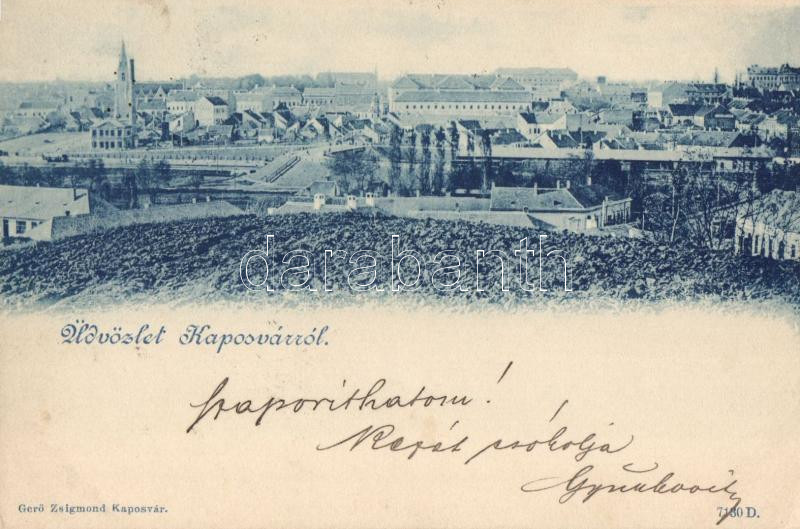 darabanth
Üdvözlet Kaposvárról.
szaporithatom!
Kezét csókolja
Gerő Zsigmond Kaposvár.
7130 D.